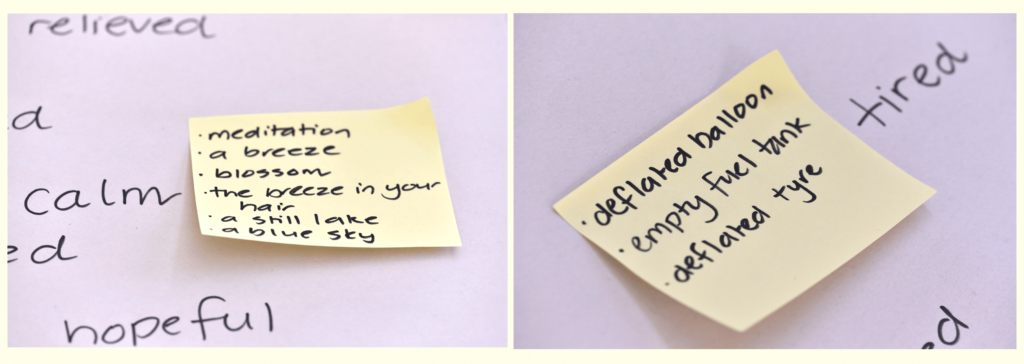 relieved
d
calm
ed
hopeful
· meditation
· a breeze
· blossom
· the breeze in your
hair
· a still lake
· a blue sky
tired
· deflated balloon
· empty fuel tank
· deflated tyre
ed